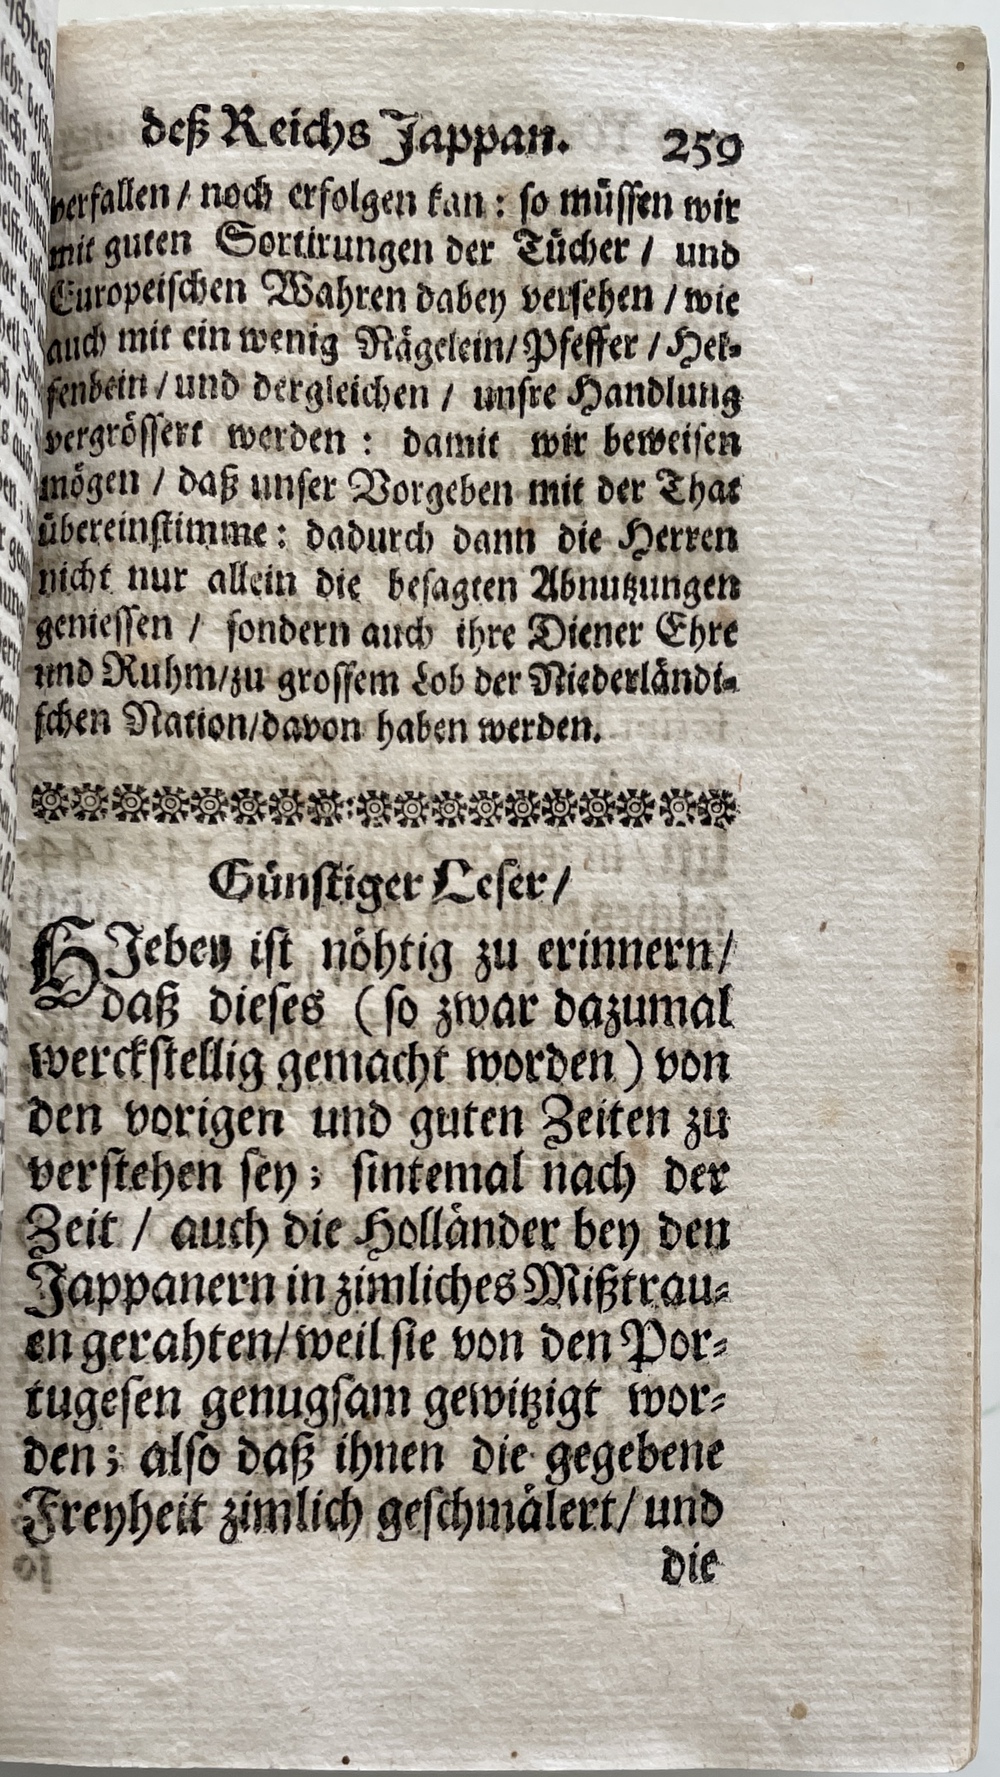 deß Reichs Jappan. 259
verfallen / noch erfolgen kan : so müssen wir
mit guten Sortirungen der Tücher / und
Europeischen Wahren dabey versehen / wie
auch mit ein wenig Nägelein / Pfeffer / Hel-
fenbein / und dergleichen / unsre Handlung
vergrössert werden : damit wir beweisen
mögen / daß unser Vorgeben mit der That
übereinstimme : dadurch dann die Herren
nicht nur allein die besagten Abnutzungen
geniessen / sondern auch ihre Diener Ehre
und Ruhm / zu grossem Lob der Niederländi-
schen Nation / davon haben werden.
Günstiger Leser /
HJebey ist nöhtig zu erinnern /
daß dieses ( so zwar dazumal
werckstellig gemacht worden ) von
den vorigen und guten Zeiten zu
verstehen sey ; sintemal nach der
Zeit / auch die Holländer bey den
Jappanern in zimliches Mißtrau-
en gerahten / weil sie von den Por-
tugesen genugsam gewitzigt wor-
den ; also daß ihnen die gegebene
Freyheit zimlich geschmälert / und
die